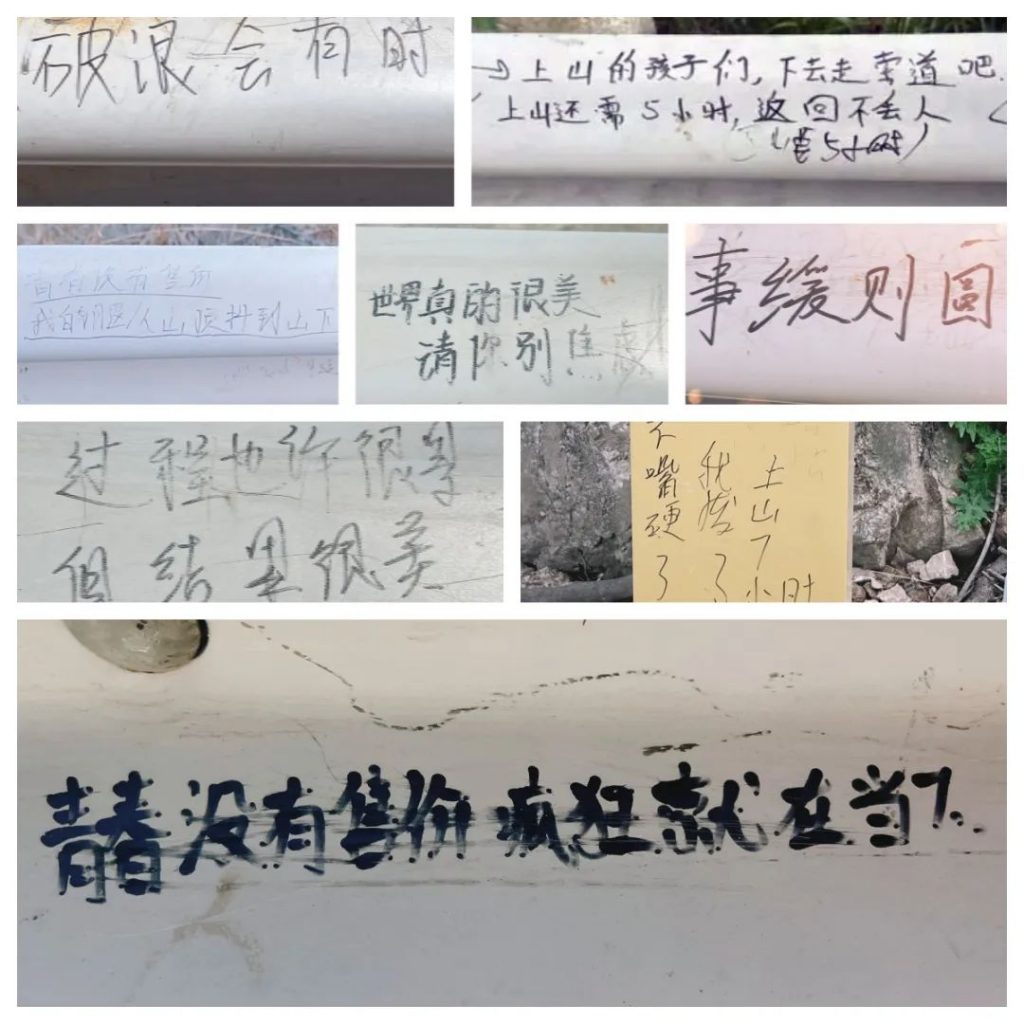 破浪会有时
→上山的孩子们,下去走索道吧.
上山还需5小时,返回不丢人
5小时)
青春没有售价
到山下
世界真的很美
请你别焦虑
事缓则圆
过程也许很
但结果很美
上山7小时
我废了
不嘴硬了
青春没有售价 疯狂就在当下.